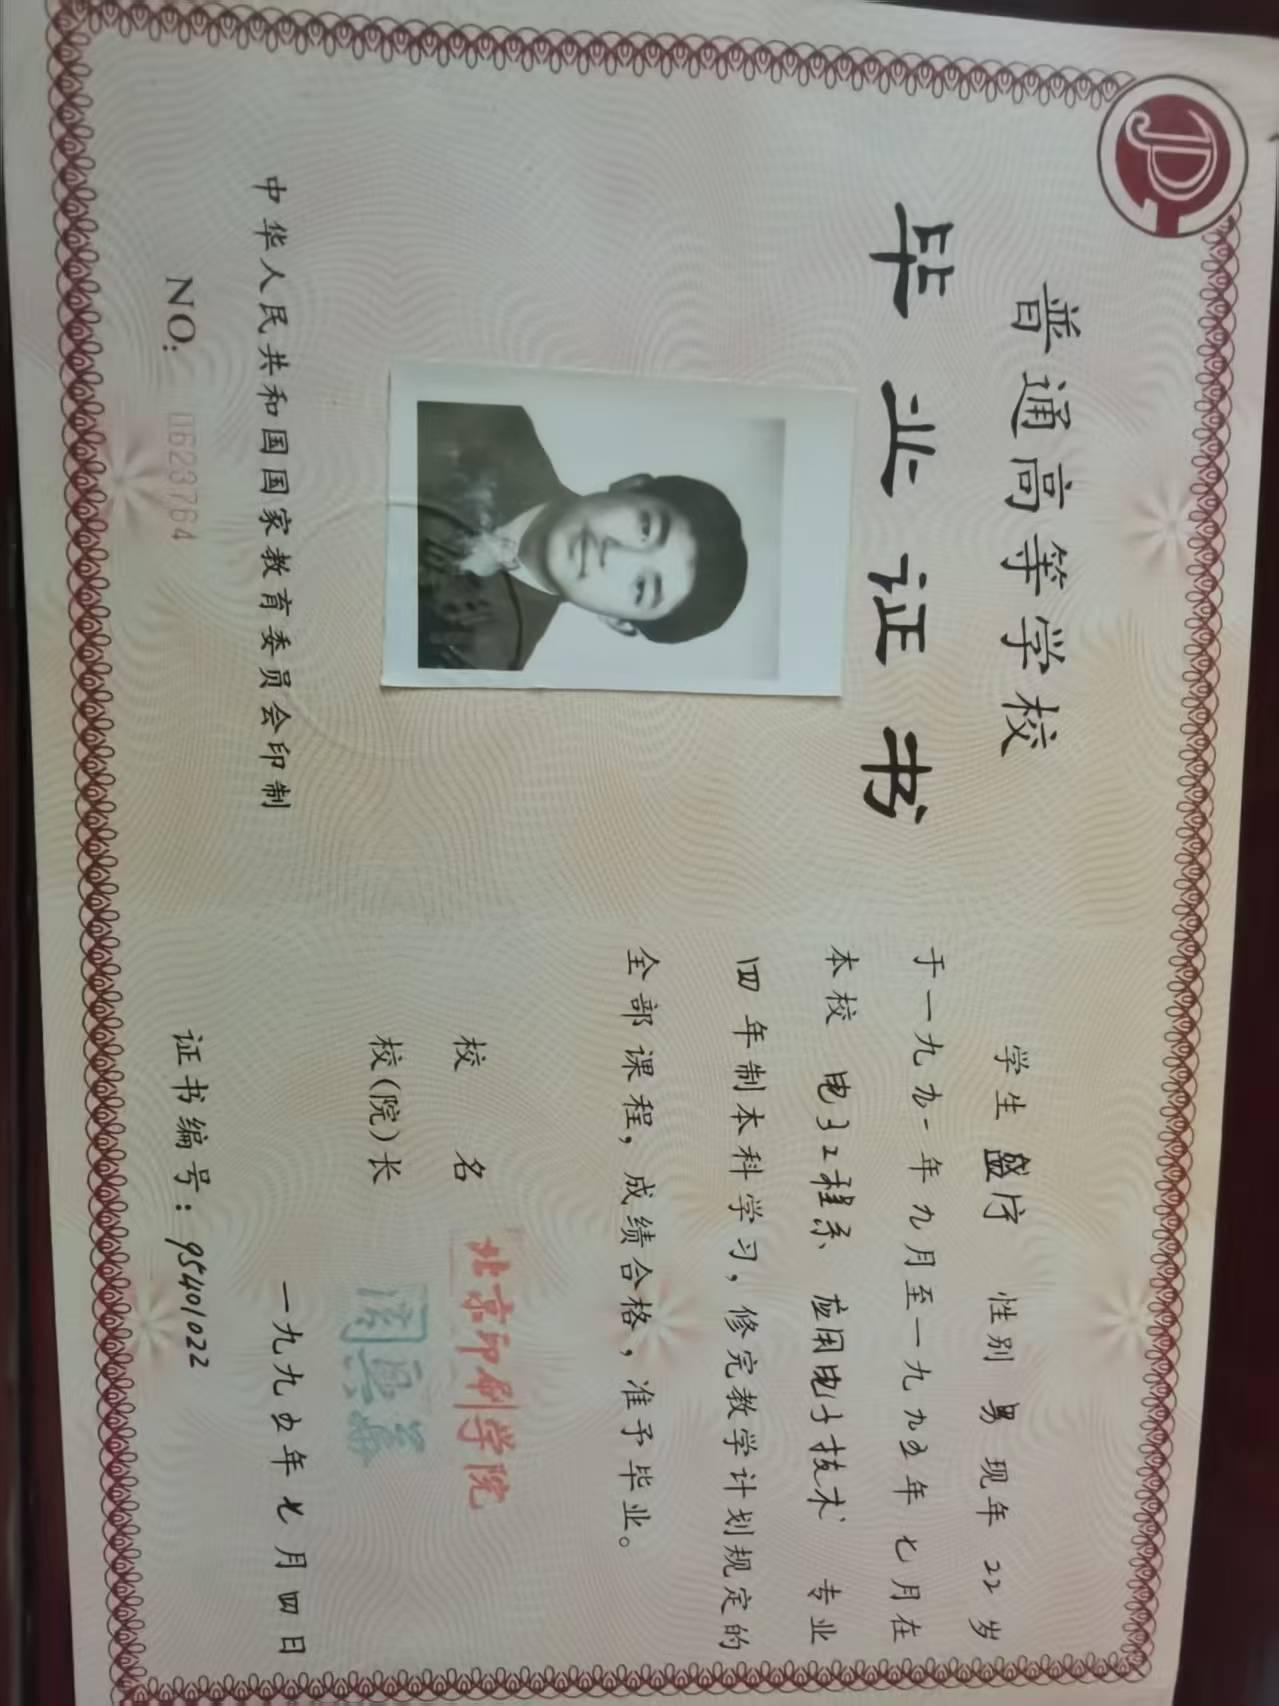 普通高等学校
毕业证书
中华人民共和国国家教育委员会印制
NO: 0623764
学生 盛序 性别 男 现年 22 岁
于一九九一年九月至一九九五年七月在
本校 电子工程系 应用电子技术 专业
四年制本科学习，修完教学计划规定的
全部课程，成绩合格，准予毕业。
校 名 北京印刷学院
校(院)长
一九九五年七月四日
证书编号：95401022